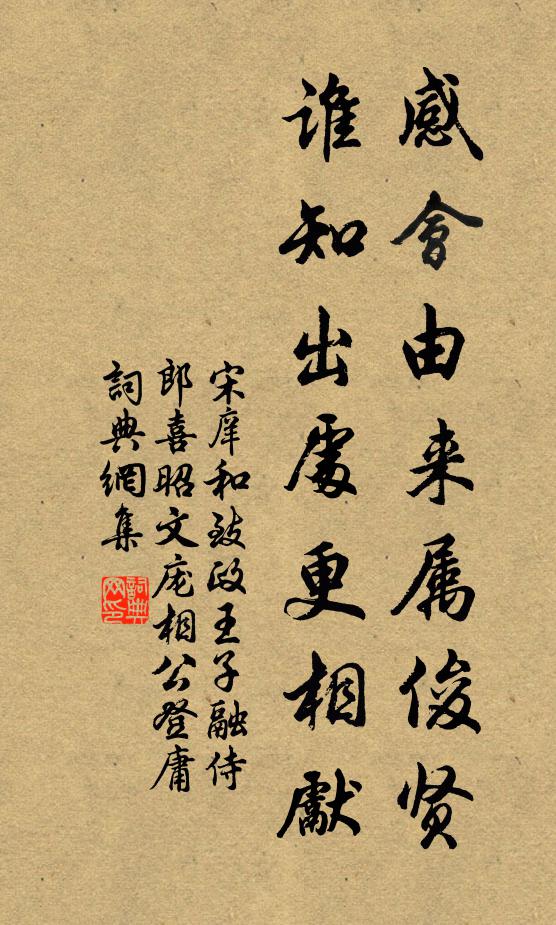 感會由来属俊贤
谁知出處更相獻
宋庠和致政王子融侍
郎喜昭文庞相公登庸
詞典網集
詞典
网印